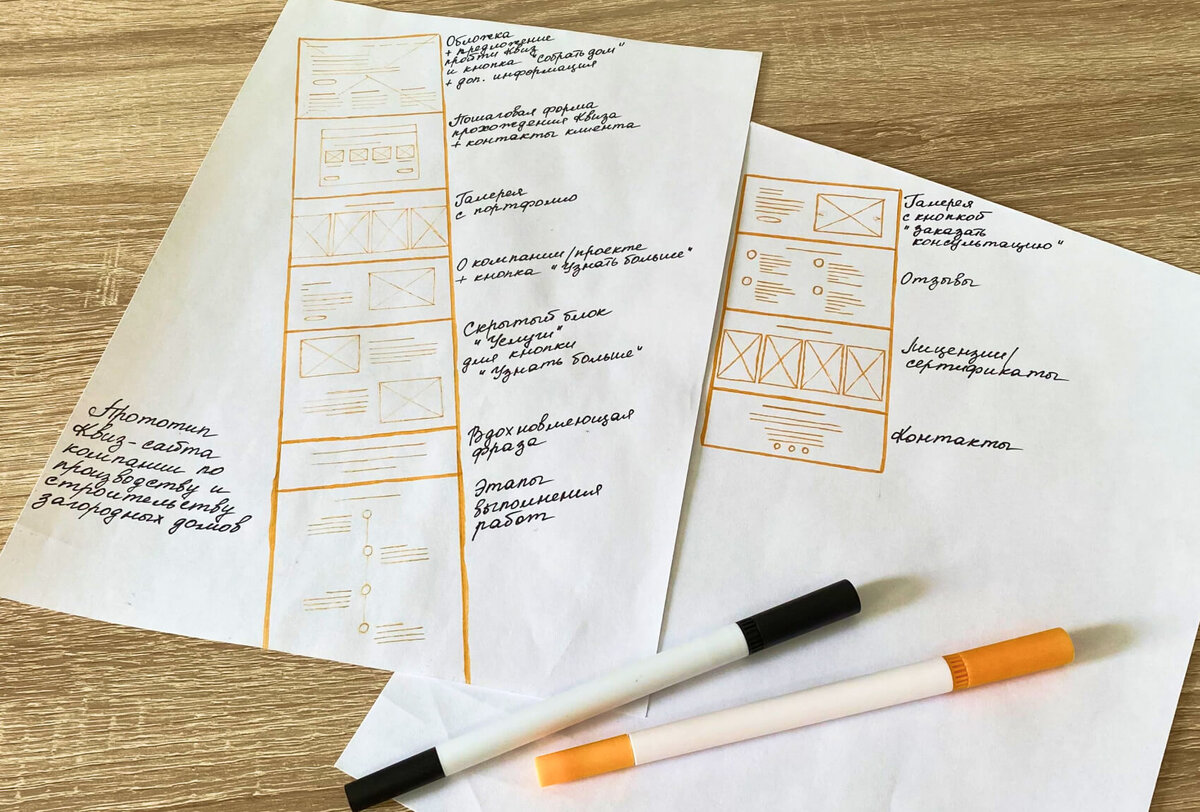 Обложка
+ предложение
пройти Квиз
и кнопка "Собрать дом"
+ доп. информация
Пошаговая форма
прохождения Квиза
+ контакты клиента
Галерея
с портфолио
О компании/проекте
+ кнопка "Узнать больше"
Скрытый блок
"Услуги"
для кнопки
"Узнать больше"
Вдохновляющая
фраза
Этапы
выполнения
работ
Прототип
Квиз-сайта
компании по
производству и
строительству
загородных домов
Галерея
с кнопкой
"Заказать
консультацию"
Отзывы
Лицензии/
сертификаты
Контакты